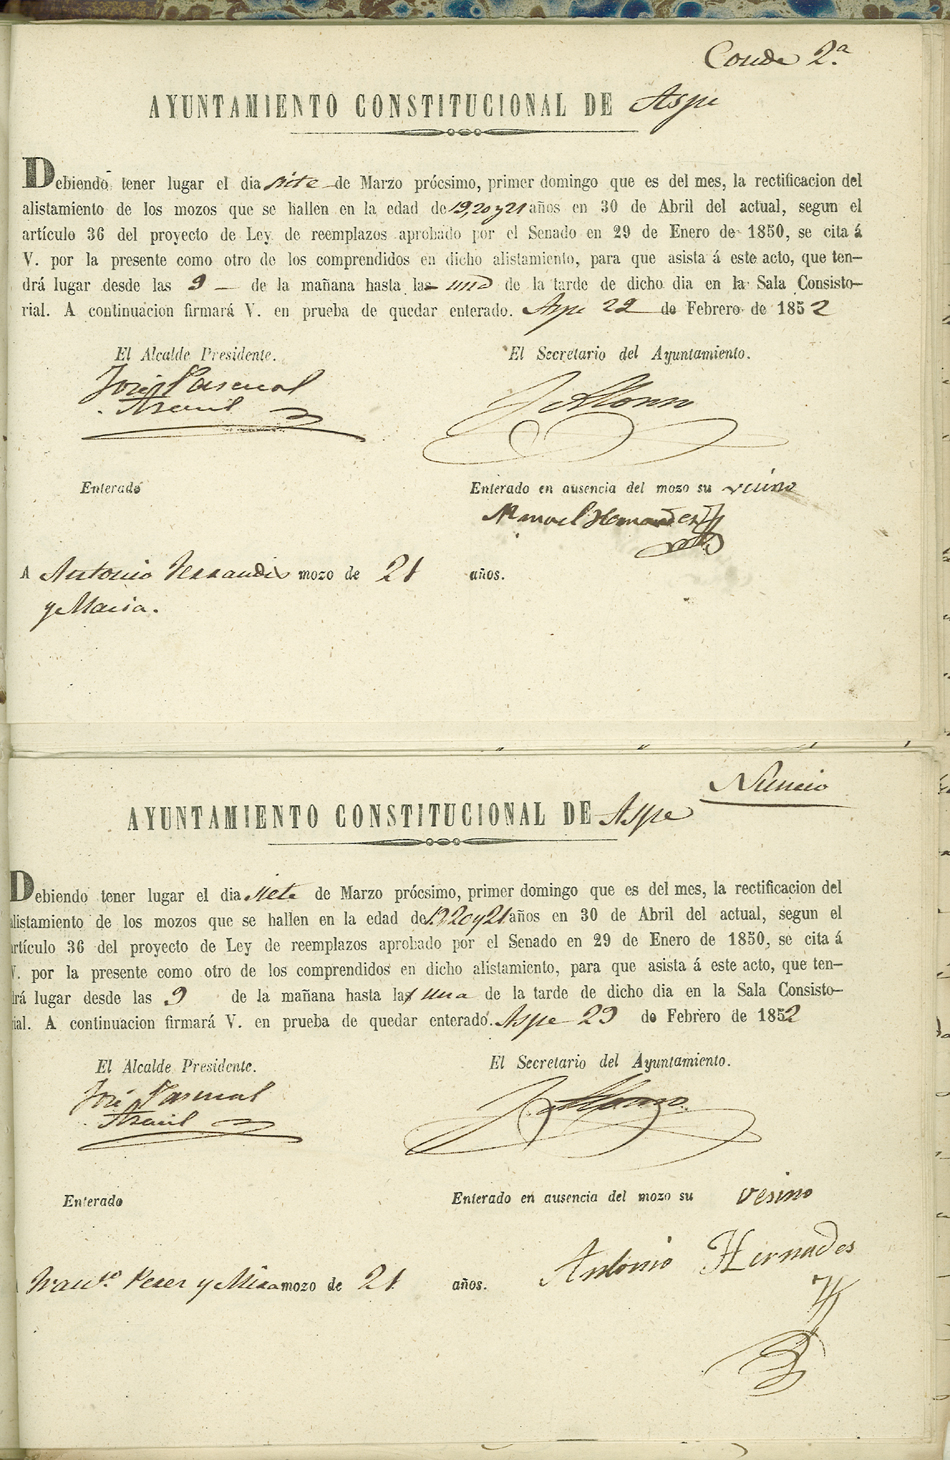 Conde 2.ª
AYUNTAMIENTO CONSTITUCIONAL DE Aspe
Debiendo tener lugar el dia siete de Marzo prócsimo, primer domingo que es del mes, la rectificacion del
alistamiento de los mozos que se hallen en la edad de 19, 20 y 21 años en 30 de Abril del actual, segun el
artículo 36 del proyecto de Ley de reemplazos aprobado por el Senado en 29 de Enero de 1850, se cita á
V. por la presente como otro de los comprendidos en dicho alistamiento, para que asista á este acto, que ten-
drá lugar desde las 9 de la mañana hasta la una de la tarde de dicho dia en la Sala Consisto-
rial. A continuacion firmará V. en prueba de quedar enterado. Aspe 22 de Febrero de 1852
El Alcalde Presidente. El Secretario del Ayuntamiento.
José Pascual Alonso
Enterado Enterado en ausencia del mozo su vecino
Manuel Hernandez
A Antonio Hernandez mozo de 21 años.
y Macia.
Nuncio
AYUNTAMIENTO CONSTITUCIONAL DE Aspe
Debiendo tener lugar el dia siete de Marzo prócsimo, primer domingo que es del mes, la rectificacion del
alistamiento de los mozos que se hallen en la edad de 19 20 y 21 años en 30 de Abril del actual, segun el
artículo 36 del proyecto de Ley de reemplazos aprobado por el Senado en 29 de Enero de 1850, se cita á
V. por la presente como otro de los comprendidos en dicho alistamiento, para que asista á este acto, que ten-
drá lugar desde las 9 de la mañana hasta la una de la tarde de dicho dia en la Sala Consisto-
rial. A continuacion firmará V. en prueba de quedar enterado. Aspe 23 de Febrero de 1852
El Alcalde Presidente. El Secretario del Ayuntamiento.
José Pascual Alonso
Enterado Enterado en ausencia del mozo su vesino
Antonio Hernades
A Franco Perez y Mira mozo de 21 años.